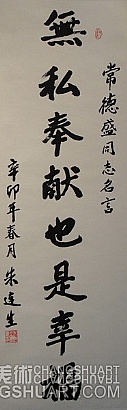 常德盛同志名言
無私奉献也是幸福
辛卯年春月朱逹生
美術
CHANGSHUART